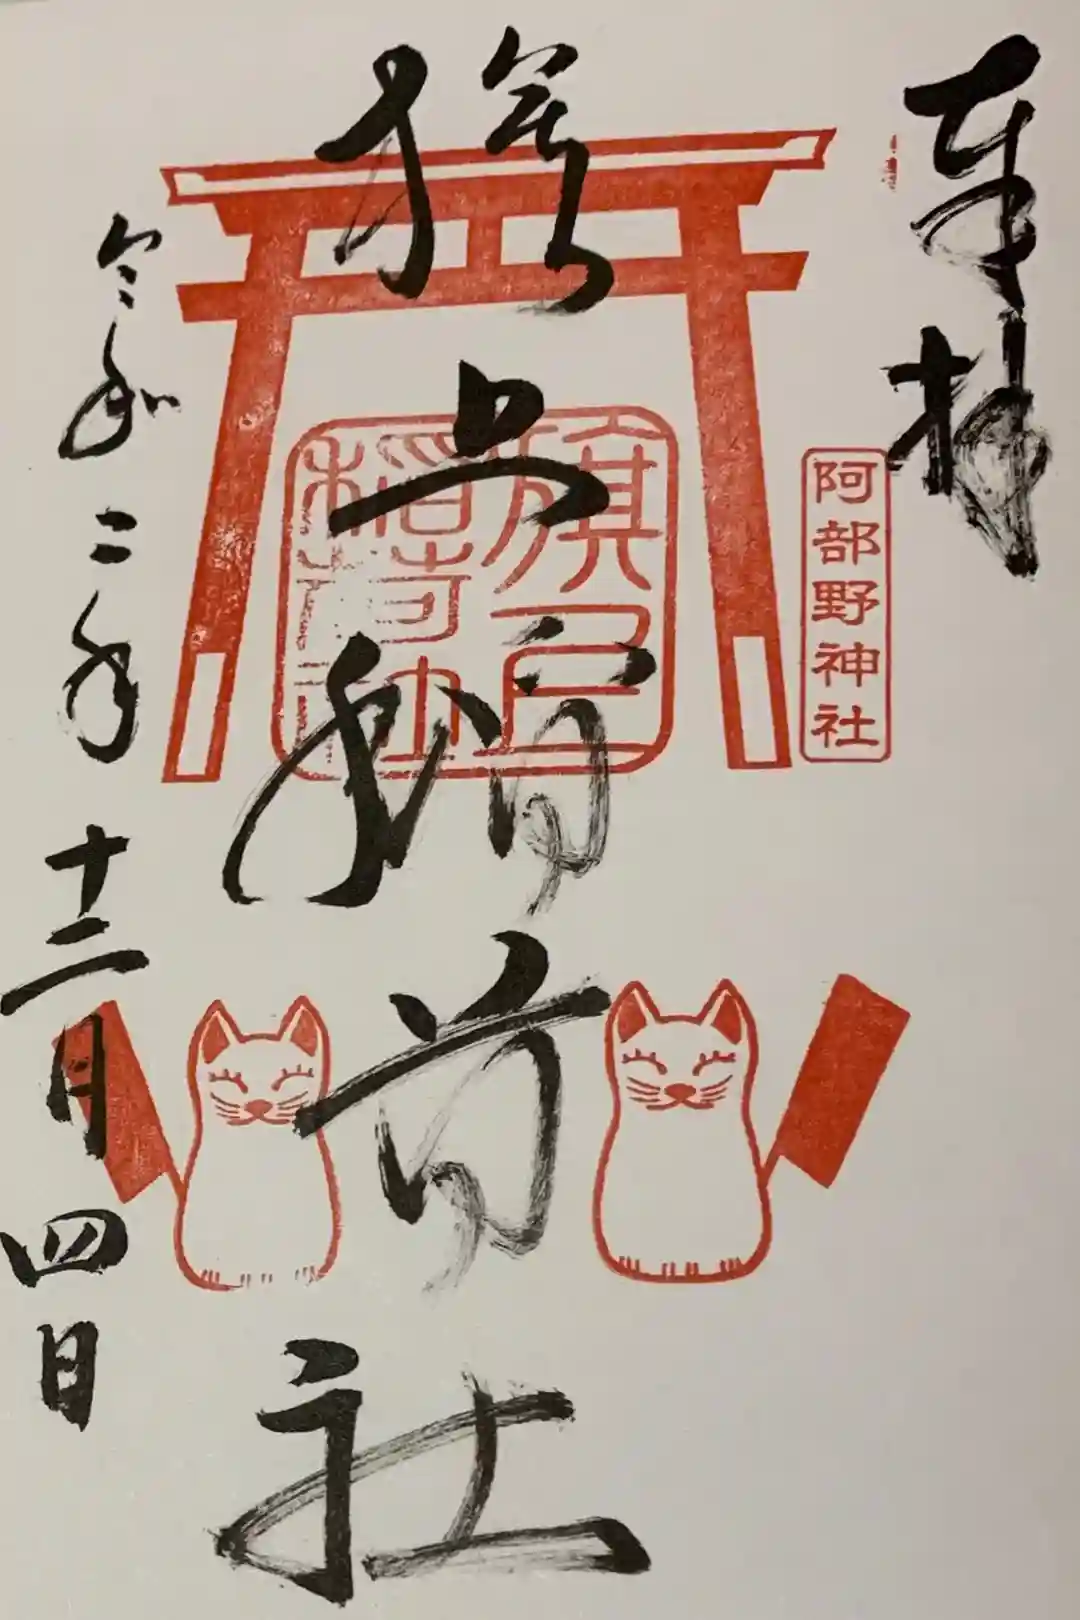 奉拝
阿部野神社
旗上稲荷社
旗上
稲荷社
令和二年十二月四日